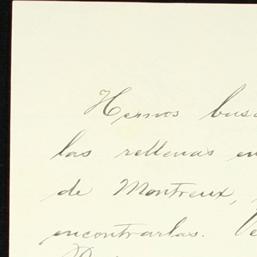 Hemos busc
las rellenas en
de Montreux,
encontrarlas. Ve